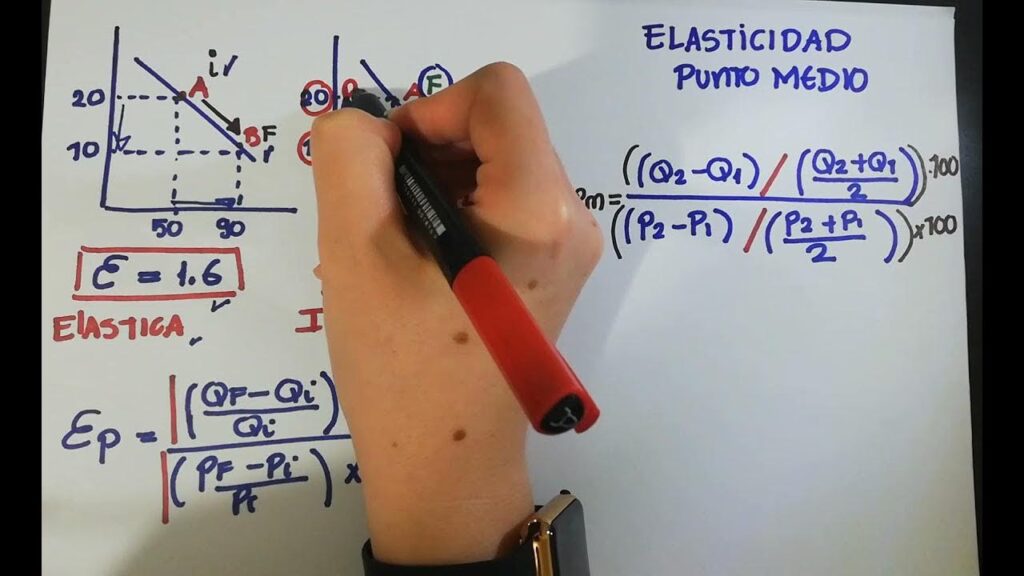 ELASTICIDAD
PUNTO MEDIO
i
20
A
10
B F
50 90
20
A F
ε = 1.6
ELASTICA
I
εp = |((QF - Qi)/Qi)
|((PF - Pi)/Pi) x
m = ((Q2 - Q1) / ((Q2 + Q1)/2)) · 100
((P2 - P1) / ((P2 + P1)/2)) x 100